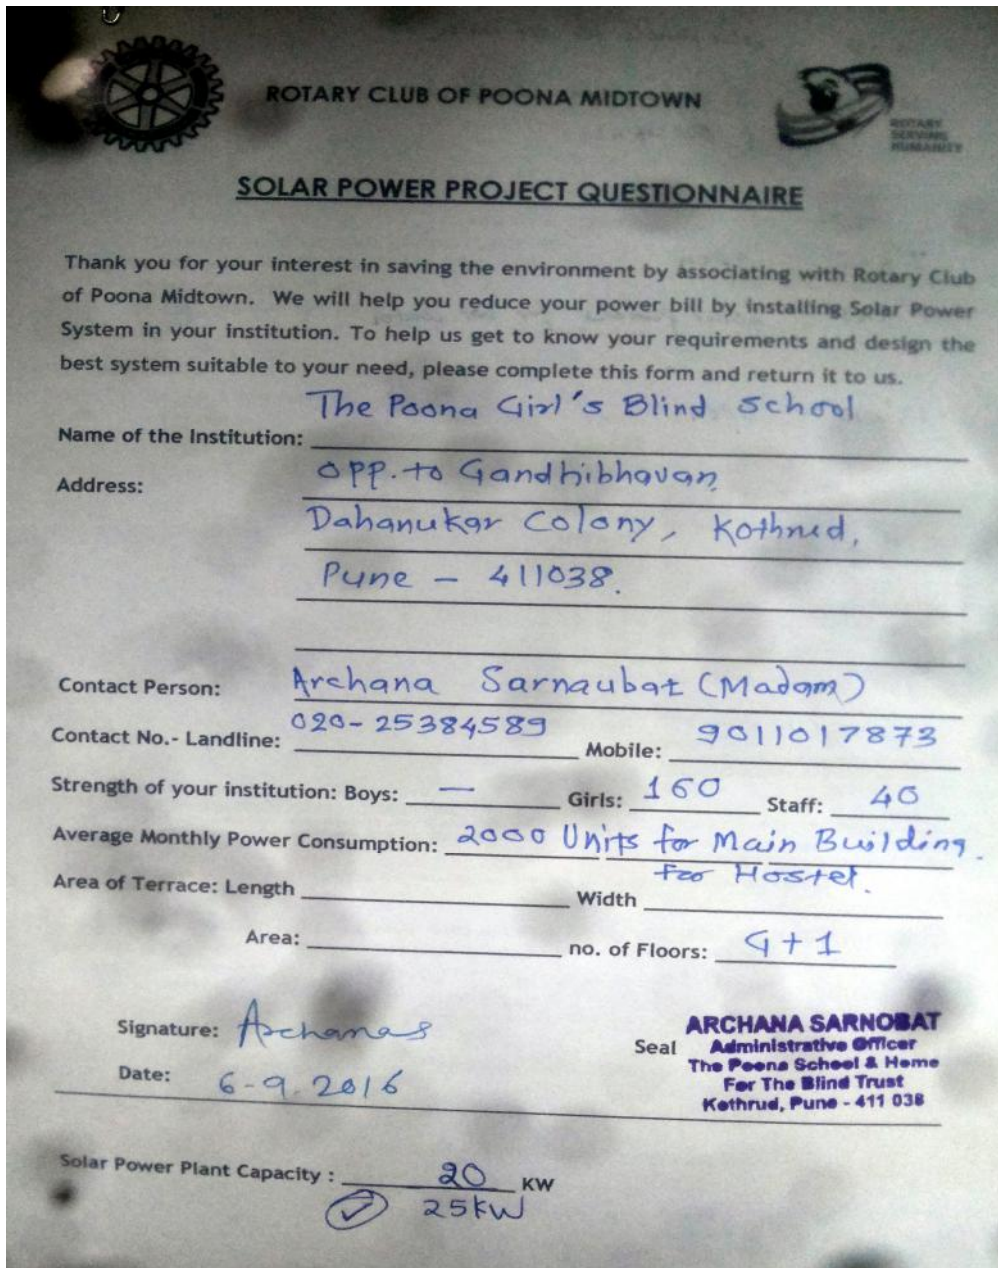 ROTARY CLUB OF POONA MIDTOWN
ROTARY
SERVING
HUMANITY
SOLAR POWER PROJECT QUESTIONNAIRE
Thank you for your interest in saving the environment by associating with Rotary Club
of Poona Midtown. We will help you reduce your power bill by installing Solar Power
System in your institution. To help us get to know your requirements and design the
best system suitable to your need, please complete this form and return it to us.
Name of the Institution: The Poona Girl's Blind School
Address: Opp. to Gandhibhavan,
Dahanukar Colony, Kothrud,
Pune - 411038.
Contact Person: Archana Sarnaubat (Madam)
Contact No.- Landline: 020-25384589 Mobile: 9011017873
Strength of your institution: Boys: — Girls: 160 Staff: 40
Average Monthly Power Consumption: 2000 Units for Main Building.
for Hostel.
Area of Terrace: Length Width
Area: no. of Floors: G+1
Signature: Archanas
Seal
ARCHANA SARNOBAT
Administrative Officer
The Poona School & Home
For The Blind Trust
Kothrud, Pune - 411 038
Date: 6-9.2016
Solar Power Plant Capacity : 20 KW
25KW